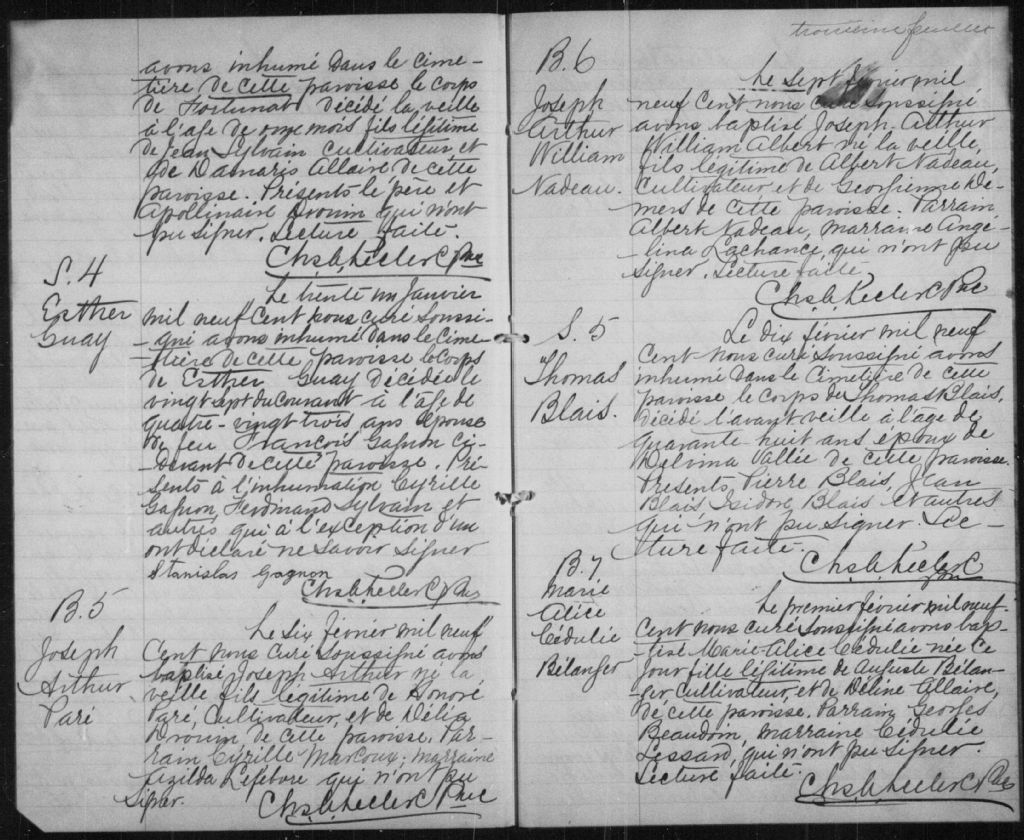 avons inhumé dans le cime-
tière de cette paroisse le corps
de Fortunat décédé la veille
à l'age de onze mois fils légitime
de Jean Sylvain cultivateur et
de Damaris Allaire de cette
paroisse. Présents le père et
Apollinaire Drouin qui n'ont
pu signer. Lecture faite.
Chs. A. Leclerc Ptre
S. 4
Esther
Guay
Le trente un Janvier
mil neuf cent nous curé soussi-
-gné avons inhumé dans le cime-
-tière de cette paroisse le corps
de Esther Guay décédée le
vingt sept du courant à l'age de
quatre-vingt trois ans épouse
de feu François Gagnon ci-
-devant de cette paroisse. Pré-
sents à l'inhumation Cyrille
Gagnon, Ferdinand Sylvain et
autres qui à l'exception d'un
ont déclaré ne savoir signer
Stanislas Gagnon
Chs. A. Leclerc Ptre
B. 5
Joseph
Arthur
Paré
Le six février mil neuf
cent nous curé soussigné avons
baptisé Joseph Arthur né la
veille fils légitime de Honoré
Paré, cultivateur, et de Délia
Drouin de cette paroisse. Par-
rain Cyrille Marcoux; marraine
Azilda Lefebvre qui n'ont pu
signer.
Chs. A. Leclerc Ptre
troisième feuillet
B. 6
Joseph
Arthur
William
Nadeau.
Le sept février mil
neuf cent nous curé soussigné
avons baptisé Joseph Arthur
William Albert né la veille,
fils légitime de Albert Nadeau,
cultivateur et de Georgienne De-
mers de cette paroisse. Parrain
Albert Nadeau, marraine Angé-
lina Lachance, qui n'ont pu
signer. Lecture faite.
Chs. A. Leclerc Ptre
S. 5
Thomas
Blais.
Le dix février mil neuf
cent nous curé soussigné avons
inhumé dans le cimetière de cette
paroisse le corps de Thomas Blais,
décédé l'avant veille à l'âge de
quarante-huit ans époux de
Delvina Vallée de cette paroisse.
Présents, Pierre Blais, Jean
Blais, Isidore Blais et autres
qui n'ont pu signer. Lec-
ture faite.
Chs. A. Leclerc
Ptre
B. 7
Marie
Alice
Cédulie
Bélanger
Le premier février mil neuf
cent nous curé soussigné avons bap-
-tisé Marie-Alice Cédulie née ce
jour fille légitime de Auguste Bélan-
ger cultivateur, et de Déline Allaire,
de cette paroisse. Parrain, Georges
Beaudoin, marraine Cédulie
Lessard, qui n'ont pu signer.
Lecture faite.
Chs. A. Leclerc Ptre